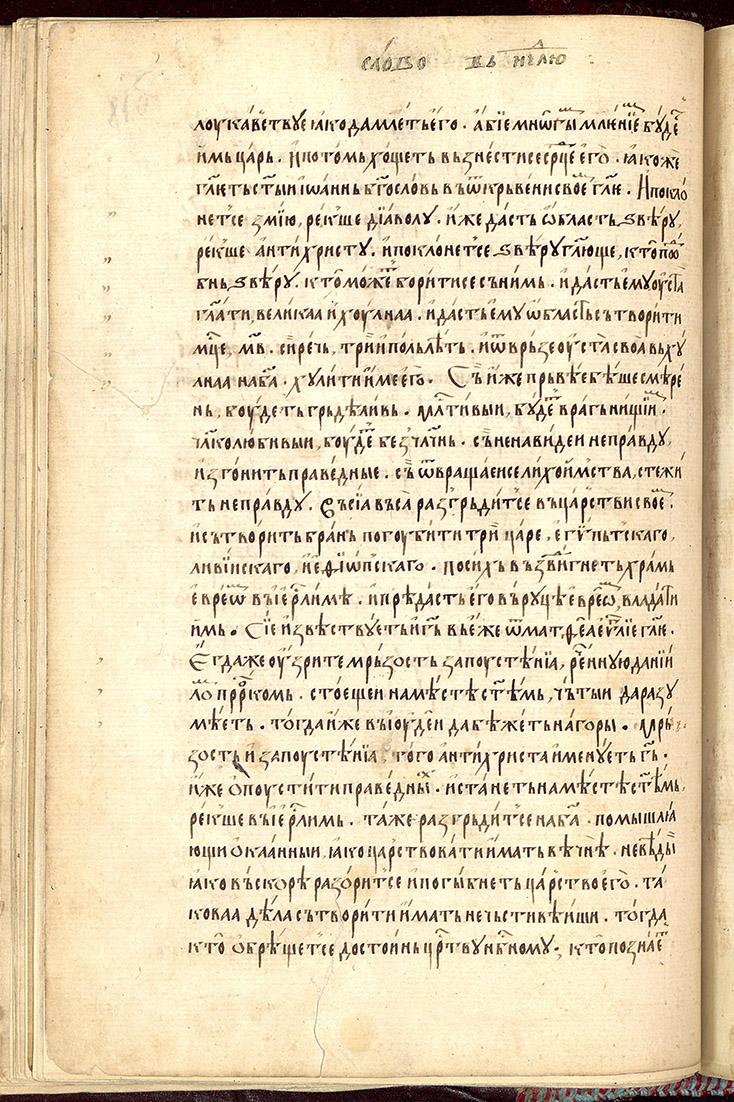 слово въ нєлю
лоукавствуе ꙗко да млⷭтьего. абїе мнѡгы молєнїе будеⷮ
имь царь. и потомь хощеть възнести се срⷣце его. ꙗкоже
глѥть ст҃ыи іѡаннь бг҃ословь въ ѿкрьвени своеⷨ гл҃ю. И покло
нет се змїю, рекше дїаволу. иже дасть ѡбласть ѕвѣру,
рекше антихристу. и поклонет се ѕвѣру гл҃юще, кто поⷣѡ
бнь ѕвѣру. кто можеⷮ борити се сь нимь. и дасть ему оуста
гл҃ати, великаа и хоулнаа. и дасть ему ѡбласть сътворити
мⷭце, м҃в. сирѣчь, три и польлѣть. и ѿврьзе оуста своа въ ху
лнаа на ба҃. хулити име его. Съ иже прьвѣе бѣше смѣре
нь, боудеть грьдѣливь. млⷭтивыи, будеⷮ врагь нищїиⷨ.
чл҃колюбивыи, боудеⷮ безчл҃чнь. съ ненавидеи неправду,
изгонить праведные. съ ѿвращаеи се лихоимства, стежи
ть неправду. Въ сїа въса разгрьдит се въ царстви своеⷨ.
и сътворить брань погоубити три царе, егѵпьтскаго,
ливїискаго, и еѳїѡпскаго. по сихь въздвигнеть храмь
еврѣѡⷨ въ іерⷭлимѣ. и прѣдасть его въ руцѣ еврѣѡⷨ, владати
имь. Сїе извѣствуеть и гь҃ въ еже ѿ матѳеа еѵⷢлїе гл҃ю.
Егда же оузрите мрьзость запоустѣнїа, реⷱнную данїи
лоⷨ пррⷪкомь. стоещеи на мѣстѣ ст҃ѣмь, чьтыи да разу
мѣеть. тогда иже въ іоудеи да бѣжеть на горы. Мрь
зость и запоустѣнїа, того антихриста именуеть гь҃.
иже опоустити праведныⷯ. и станеть на мѣстѣ ст҃ѣмь,
рекше въ іерⷭлимь. таже разгрьдит се на ба҃. помышлꙗа
ющи окаанныи, ꙗко царствовати имать вѣчнѣ. не вѣдыи
ꙗко въскорѣ разорит се и погыбнеть царство его. та
коваа дѣла сътворити имать нечьстивѣиши. тогда
кто обрѣщет се достоинь црⷭтву нбⷭному. кто познаеⷮ